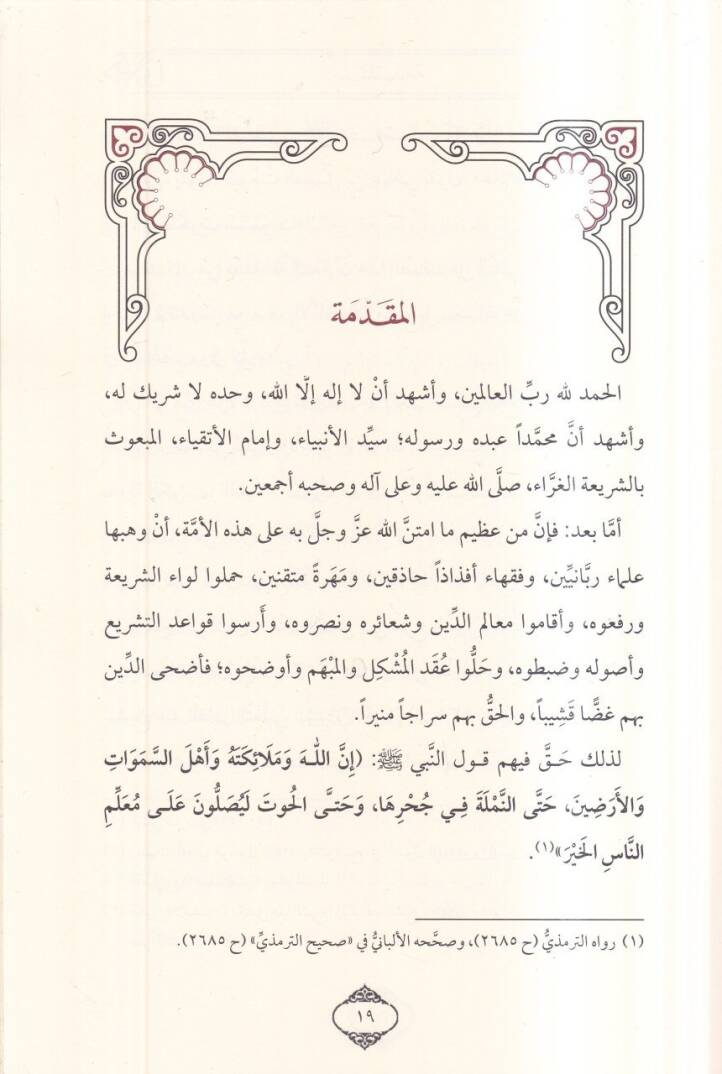 المقَدّمَة
الحمد لله ربِّ العالمين، وأشهد أنْ لا إله إلَّا الله، وحده لا شريك له،
وأشهد أنَّ محمَّداً عبده ورسوله؛ سيِّد الأنبياء، وإمام الأتقياء، المبعوث
بالشريعة الغرَّاء، صلَّى الله عليه وعلى آله وصحبه أجمعين.
أمَّا بعد: فإنَّ من عظيم ما امتنَّ الله عزَّ وجلَّ به على هذه الأمَّة، أنْ وهبها
علماء ربَّانيِّين، وفقهاء أفذاذاً حاذقين، ومَهَرةً متقنين، حملوا لواء الشريعة
ورفعوه، وأقاموا معالم الدِّين وشعائره ونصروه، وأَرسوا قواعد التشريع
وأصوله وضبطوه، وحَلُّوا عُقَد المُشْكِل والمبْهَم وأوضحوه؛ فأضحى الدِّين
بهم غضًّا قَشِيباً، والحقُّ بهم سراجاً منيراً.
لذلك حَقَّ فيهم قول النَّبي ﷺ: (إِنَّ اللهَ وَمَلَائِكَتَهُ وَأَهْلَ السَّمَوَاتِ
وَالأَرَضِينَ، حَتَّى النَّمْلَةَ فِي جُحْرِهَا، وَحَتَّى الحُوتَ لَيُصَلُّونَ عَلَى مُعَلِّمِ
النَّاسِ الخَيْرَ»(١).
(١) رواه الترمذيُّ (ح ٢٦٨٥)، وصحَّحه الألبانيُّ في «صحيح الترمذيِّ» (ح ٢٦٨٥).
١٩